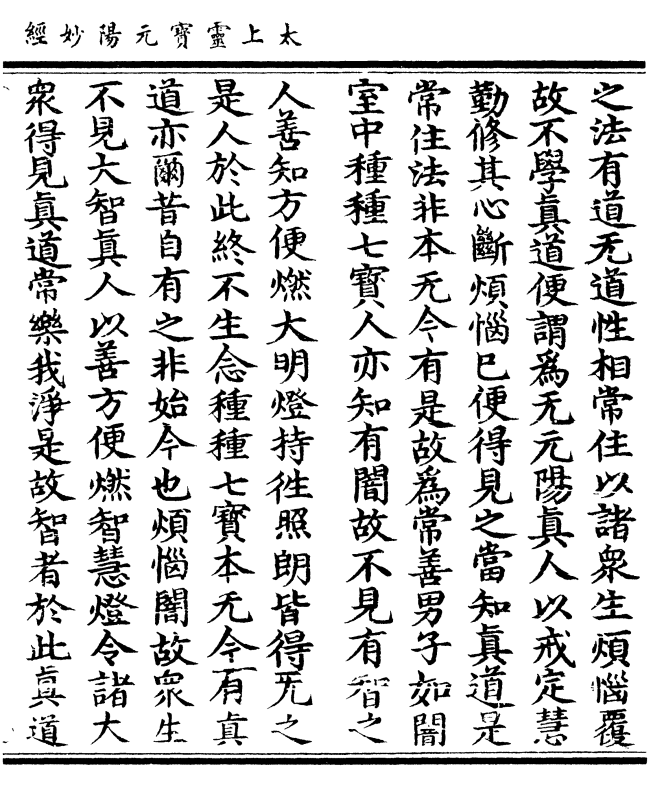 太上靈寳元陽妙經
之法有道无道性相常住以諸衆生煩惱覆
故不學眞道便謂爲无元陽眞人以戒定慧
勤修其心斷煩惱巳便得見之當知眞道是
常住法非本无今有是故爲常善男子如闇
室中種種七寳人亦知有闇故不見有智之
人善知方便燃大明燈持徃照朗皆得見之
是人於此終不生念種種七寳本无今有眞
道亦爾昔自有之非始今也煩惱闇故衆生
不見大智眞人以善方便燃智慧燈令諸大
衆得見眞道常樂我淨是故智者於此眞道